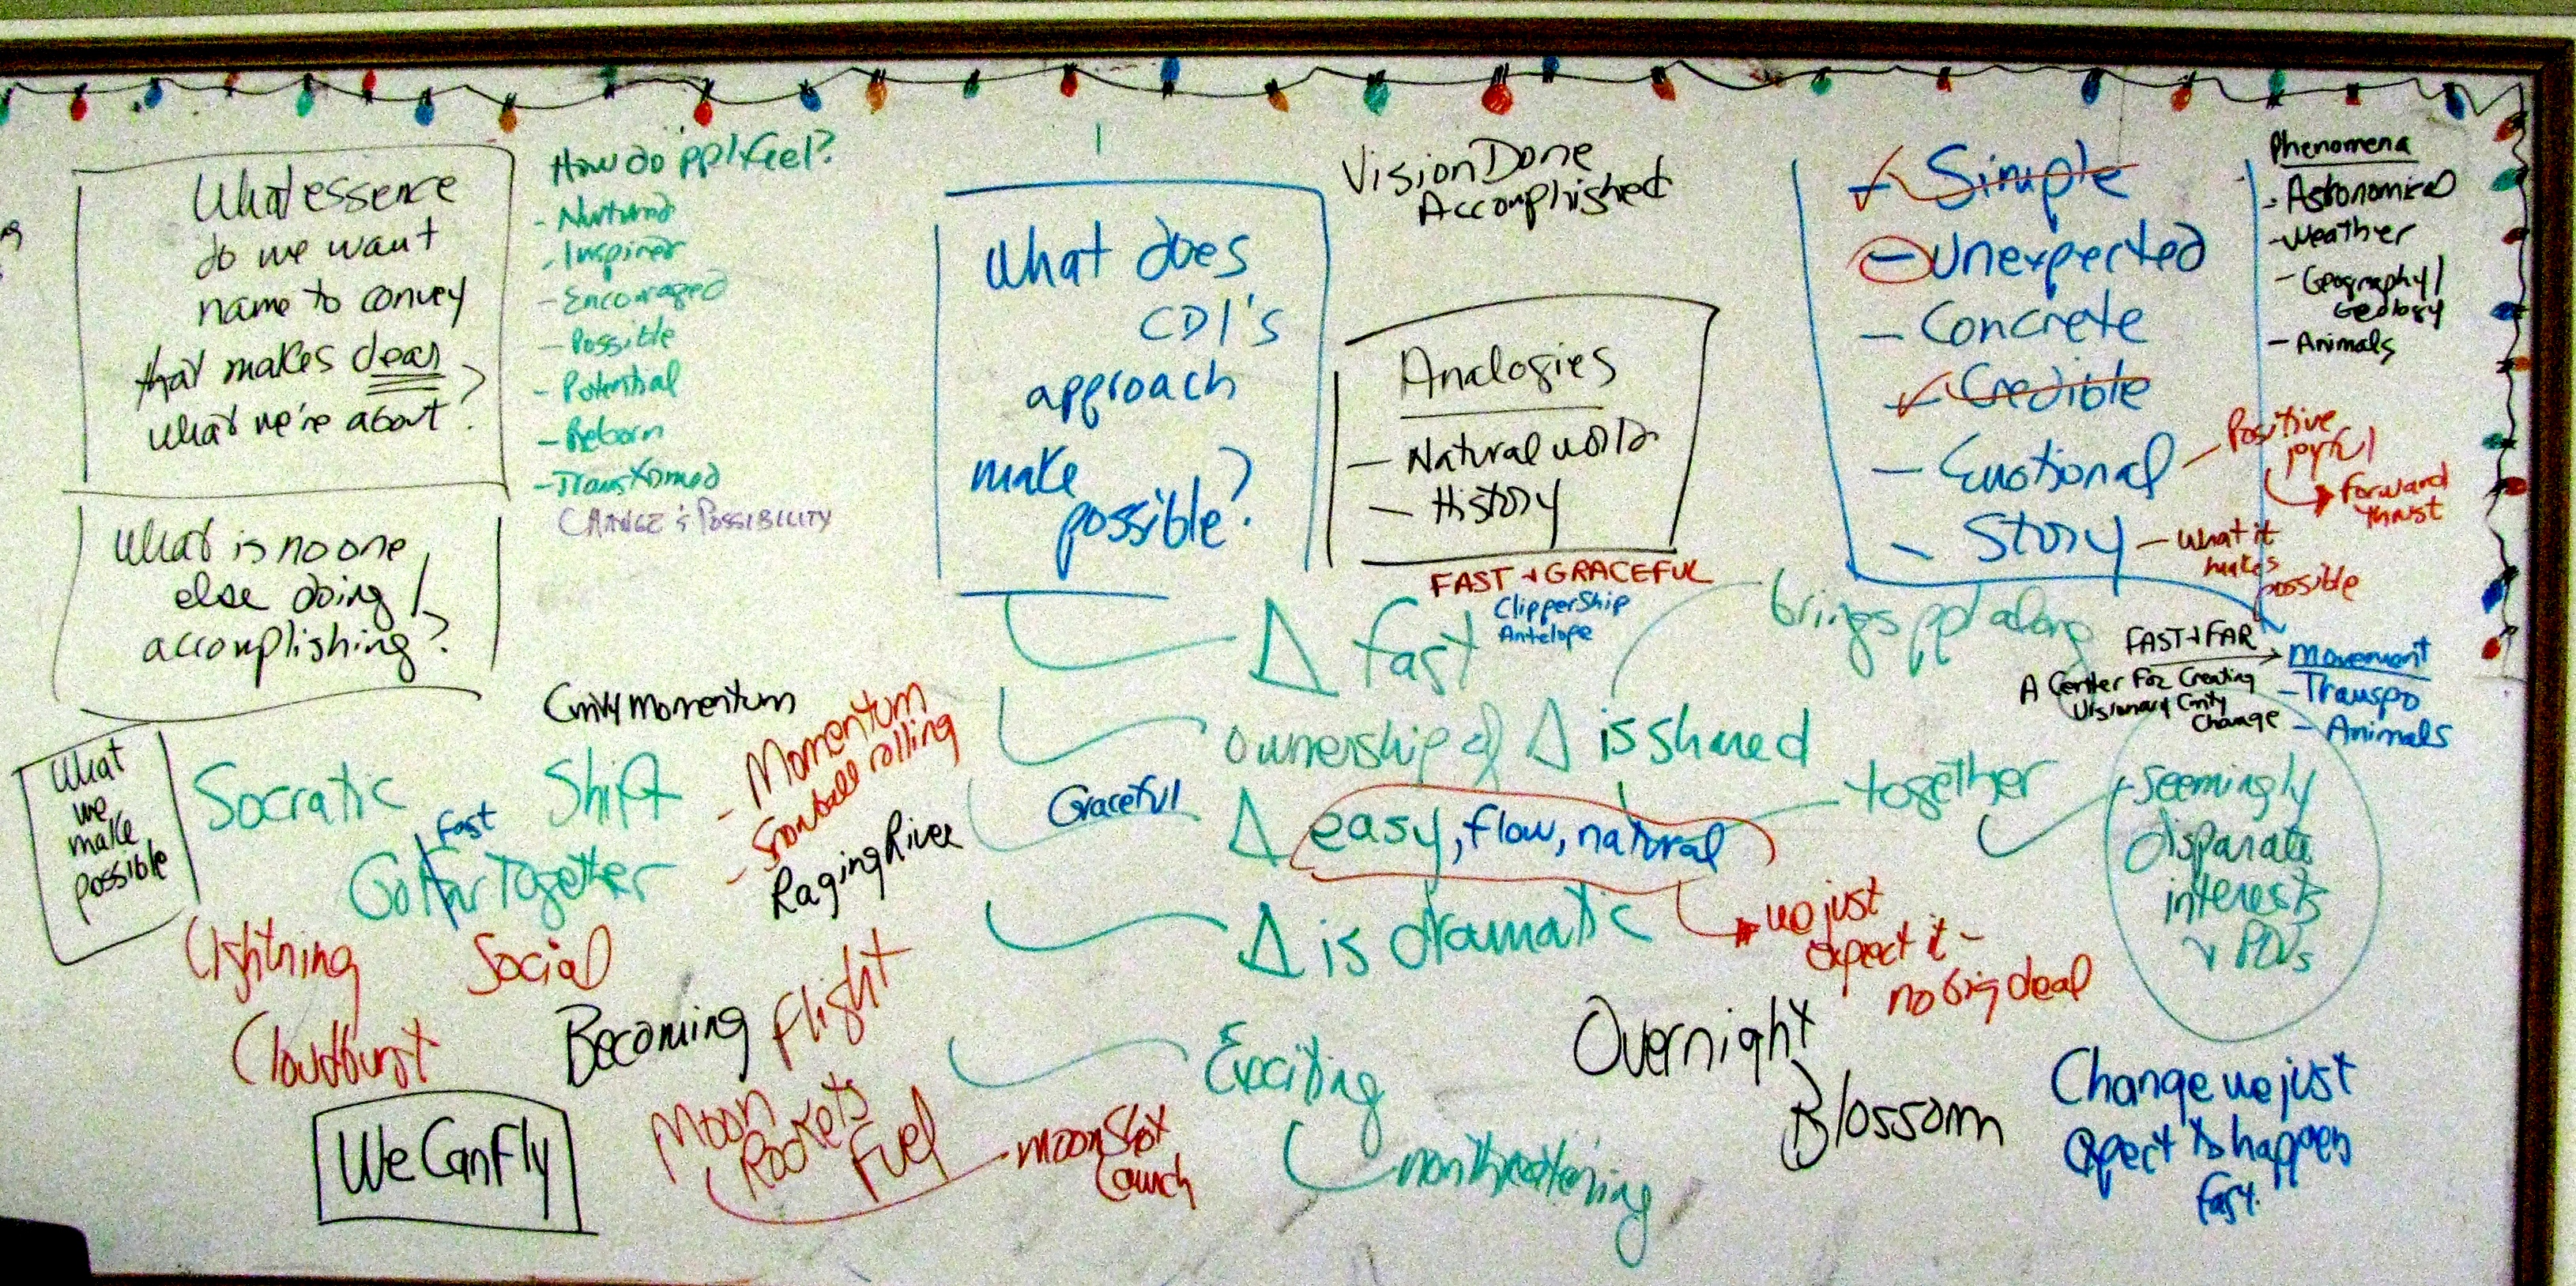 What essence
do we want
name to convey
that makes clear
what we're about?
How do ppl feel?
- Nurtured
- Inspired
- Encouraged
- Possible
- Potential
- Reborn
- Transformed
CHANGE & POSSIBILITY
What is no one
else doing/
accomplishing?
What does
CDI's
approach
make
possible?
Vision Done
Accomplished
Analogies
- Natural world
- History
FAST + GRACEFUL
Clipper Ship
Antelope
Simple
- Unexpected
- Concrete
Credible
- Emotional - Positive
joyful
forward
thrust
- Story - What it
makes
possible
Phenomena
- Astronomical
- Weather
- Geography/
Geology
- Animals
FAST + FAR
A Center For Creating
Visionary Cmty
Change
Movement
- Transpo
- Animals
Δ fast
brings ppl along
ownership of Δ is shared
Graceful
Δ easy, flow, natural
together
- Seemingly
disparate
interests
+ POVs
Δ is dramatic
we just
expect it -
no big deal
Exciting
nonthreatening
Overnight
Blossom
Change we just
expect to happen
fast.
What
we
make
possible
Cmty Momentum
Socratic
Shift
- Momentum
- Snowball rolling
Raging River
fast
Go Far Together
Lightning
Social
Cloudburst
Becoming
Flight
We Can Fly
Moon
Rockets
Fuel
moonshot
Launch